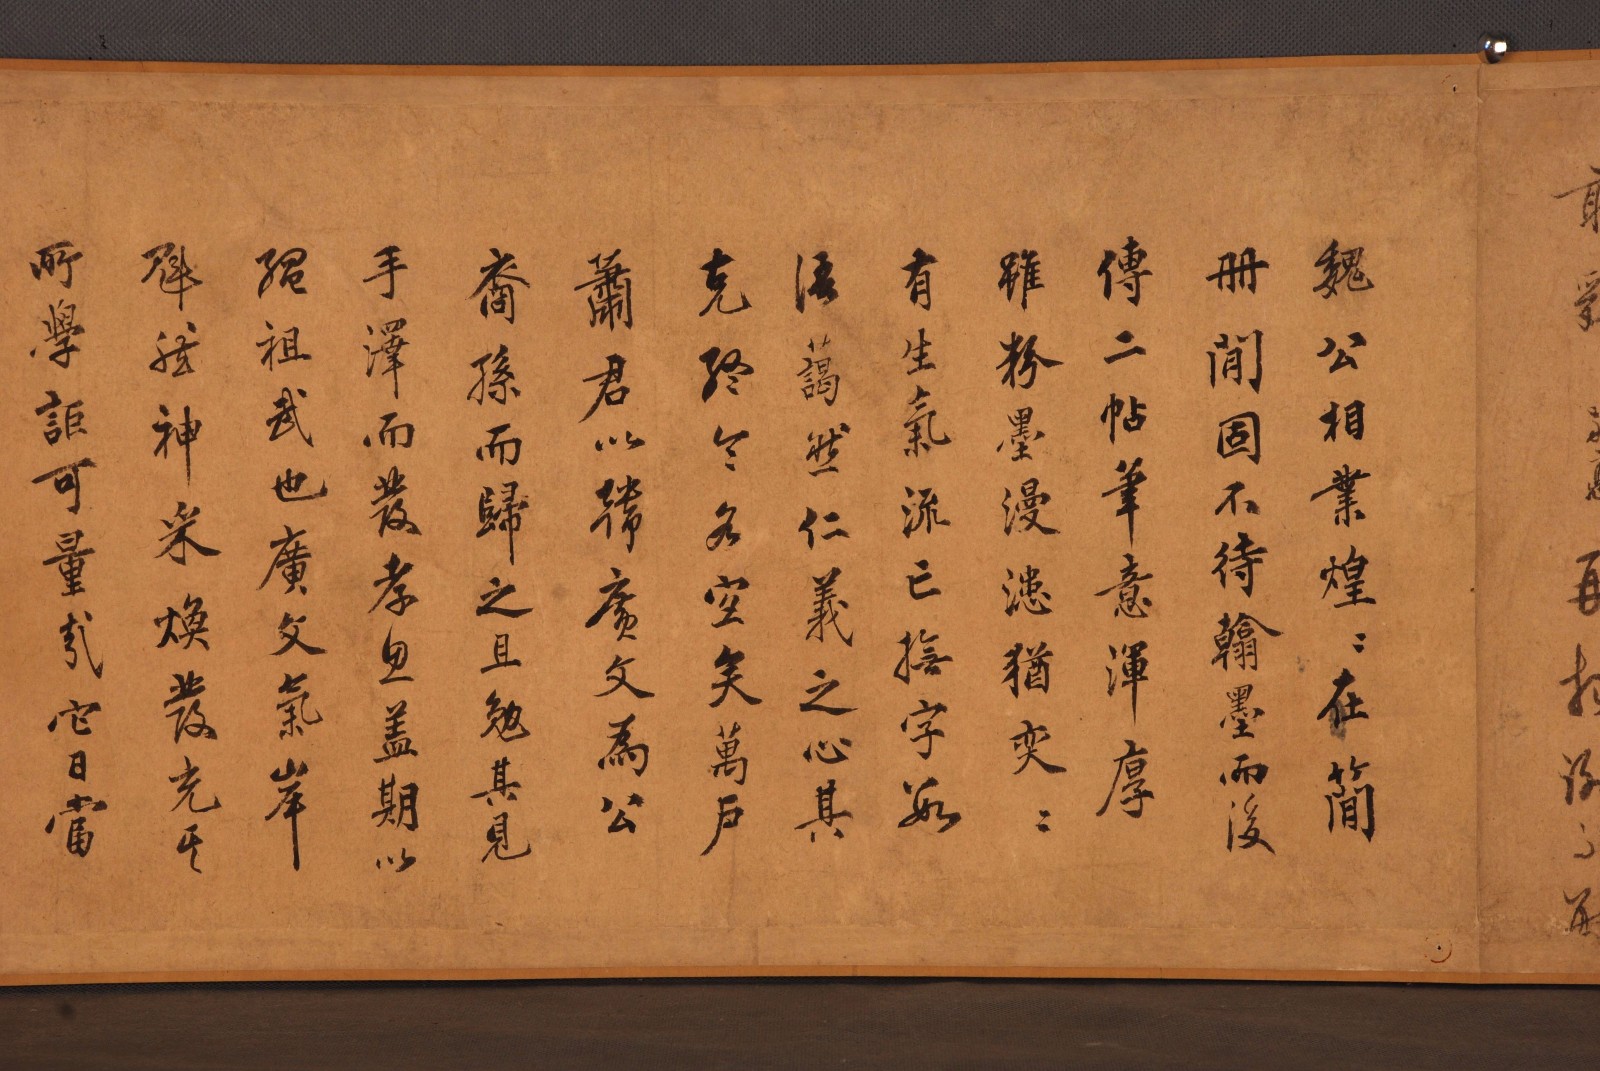 魏公相業煌〻在簡
冊間固不待翰墨而後
傳二帖筆意渾厚
雖粉墨漫漶猶奕〻
有生氣流亡撫字數
語藹然仁義之心其
克終今名宜矣萬戶
蕭君以韓廣文為公
裔孫而歸之且勉其見
手澤而發孝思盖期以
繩祖武也廣文氣岸
魁然神采煥發充其
所學詎可量哉它日當